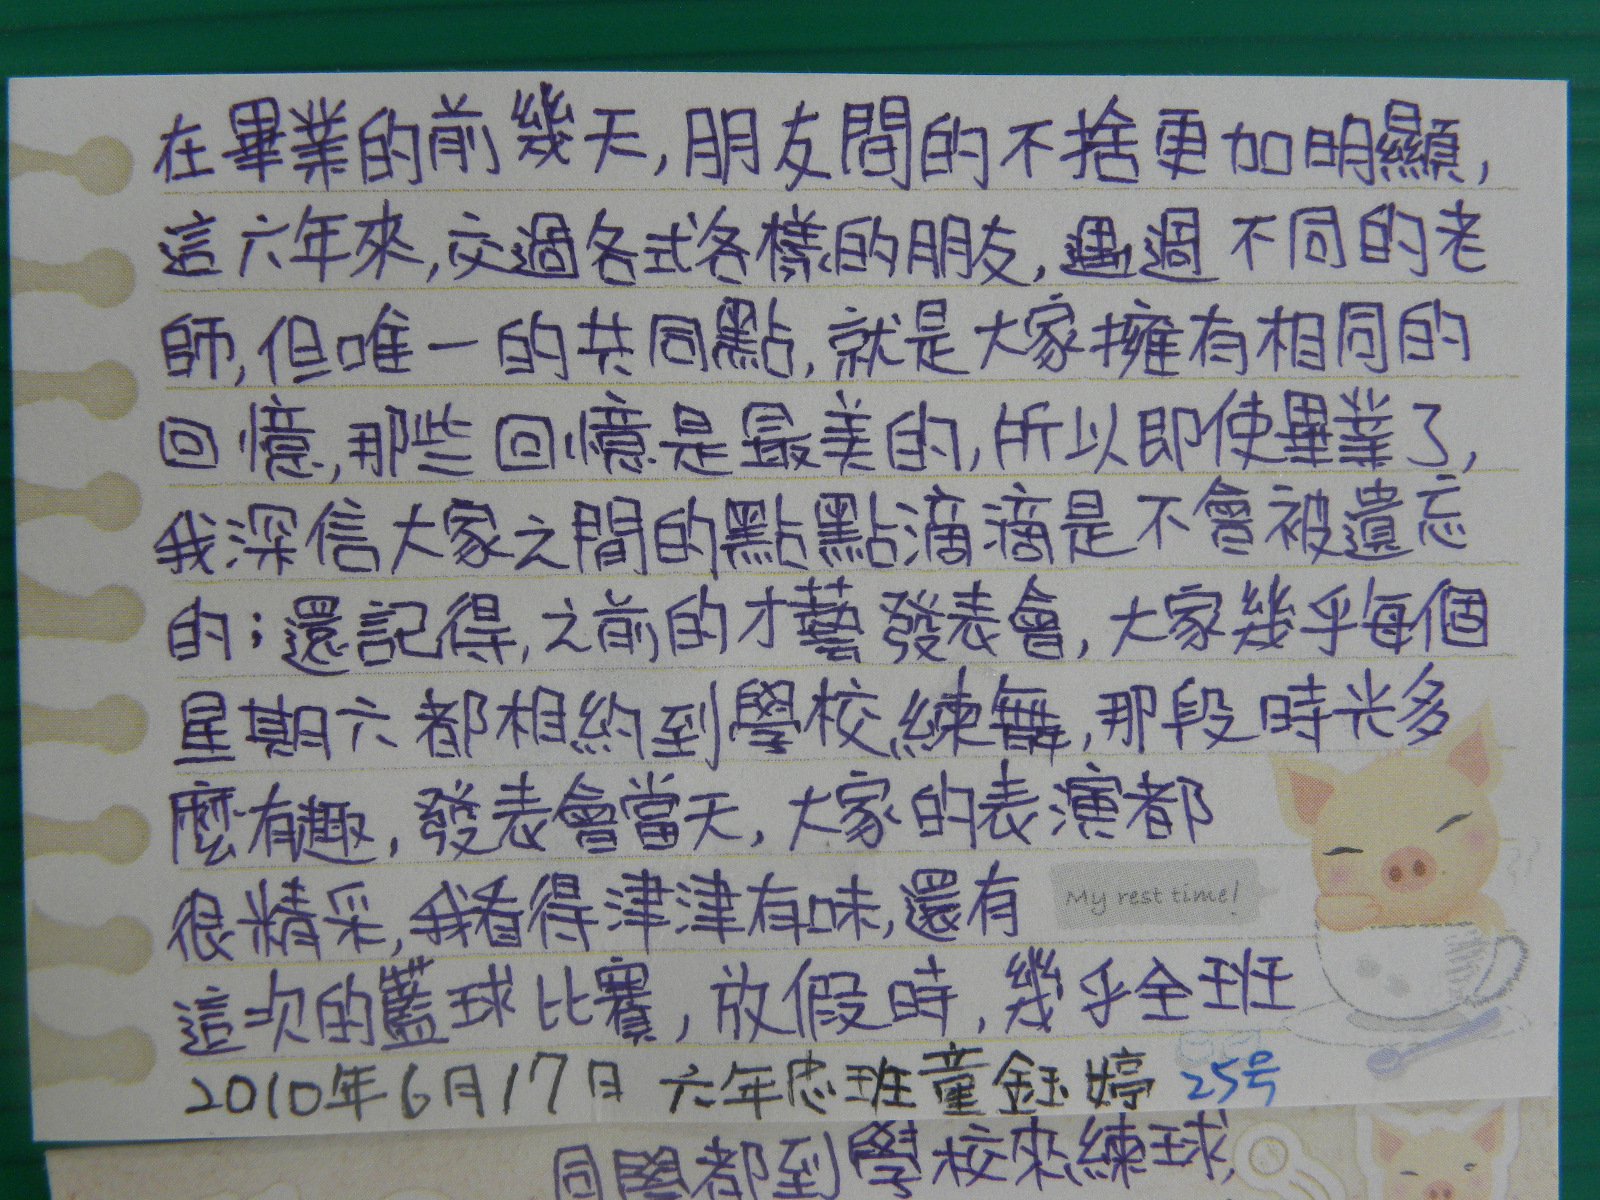 在畢業的前幾天,朋友間的不捨更加明顯,
這六年來,交過各式各樣的朋友,遇過不同的老
師,但唯一的共同點,就是大家擁有相同的
回憶,那些回憶是最美的,所以即使畢業了,
我深信大家之間的點點滴滴是不會被遺忘
的;還記得,之前的才藝發表會,大家幾乎每個
星期六都相約到學校練舞,那段時光多
麼有趣,發表會當天,大家的表演都
很精采,我看得津津有味,還有
My rest time!
這次的藍球比賽,放假時,幾乎全班
2010年6月17日 六年忠班童鈺婷 25号
同學都到學校來練球,